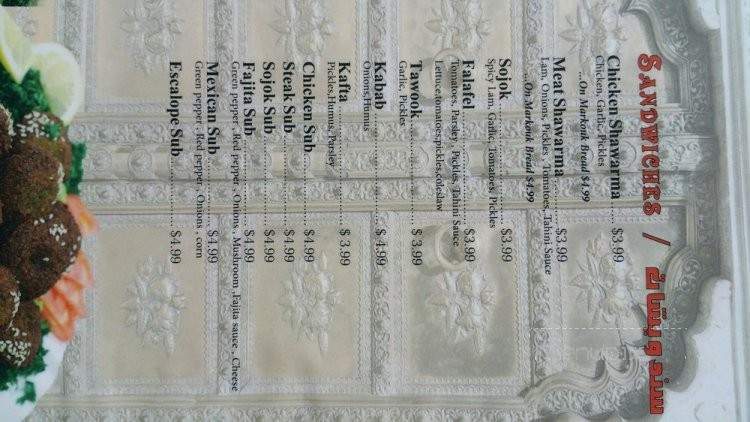 SANDWICHES / سندويشات
Chicken Shawarma ........ $3.99
Chicken, Garlic, Pickles
...On Markouk Bread $4.99
Meat Shawarma ........ $3.99
Lam, Onions, Pickles , Tomatoes,Tahini Sauce
...On Markouk Bread $4.99
Sojok ........ $3.99
Spicy Lam, Garlic, Tomatoes, Pickles
Falafel ........ $3.99
Tomatoes, Parsley , Pickles, Tahini Sauce
Lettuce,tomatoes,pickles,coleslaw
Tawook ........ $ 3.99
Garlic, Pickles
Kabab ........ $ 4.99
Onions,Humus
Kafta ........ $ 3.99
Pickles,Humus,Parsley
Chicken Sub ........ $4.99
Steak Sub ........ $4.99
Sojok Sub ........ $4.99
Fajita Sub ........ $4.99
Green pepper , Red pepper , Onions , Mushroom ,Fajita sauce , Cheese
Mexican Sub ........ $4.99
Green pepper , Red pepper , Onions , corn
Escalope Sub ........ $4.99